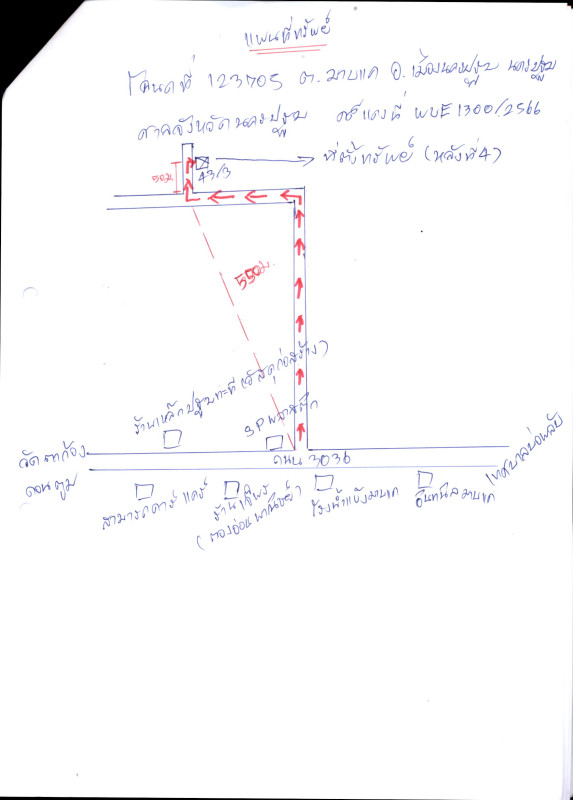 แผนที่ทรัพย์
โฉนดที่ 123705 ต.มาบแค อ.เมืองนครปฐม นครปฐม
ศาลจังหวัดนครปฐม คดีแดงที่ ผบE1300/2566
ที่ตั้งทรัพย์ (หลังที่4)
43/3
50ม.
550ม.
ร้านเหล็กปฐมทะที (วัสดุก่อสร้าง)
SP พลาสติก
วัดตาก้อง
ดอนตูม
ถนน 3036
เทศบาลบ่อพลับ
สามารถคาร์ แคร์
ร้านเจ๊พร
(ตองอ่อน พาณิชย์)
โรงน้ำแข็งมาบแค
อินทนิลมาบแค